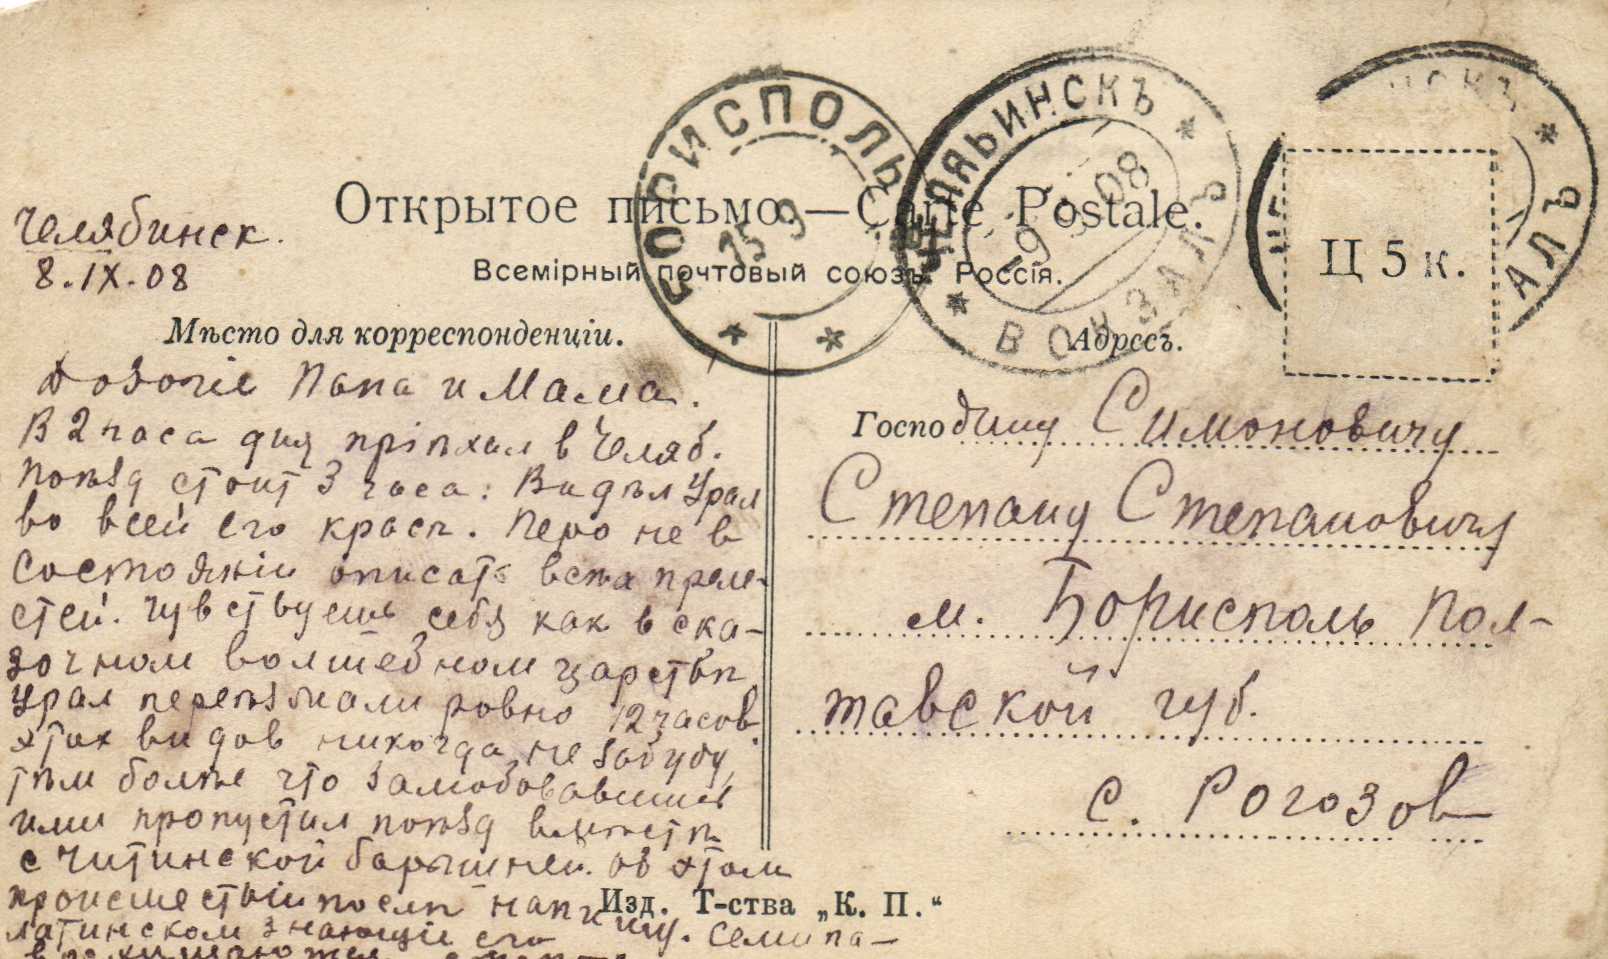 Открытое письмо. — Carte Postale.
Всемірный почтовый союзъ. Россія.
Мѣсто для корреспонденціи.
Адресъ.
Ц 5 к.
БОРИСПОЛЬ
15 9
ЧЕЛЯБИНСКЪ
ВОКЗАЛЪ
08
АЛЪ
Челябинск.
8.IX.08
Дорогіе Папа и Мама.
В 2 часа дня пріѣхал в Челяб.
Поѣзд стоит 3 часа: Видѣл Урал
во всей его красѣ. Перо не в
состояніи описать всѣх преле-
стей. Чувствуешь себя как в ска-
зочном волшебном царствѣ
Урал переѣзжали ровно 12 часов
этих видов никогда не забуду,
тѣм болѣе что залюбовавшись
ими пропустил поѣзд вмѣстѣ
с читинской барышней. Об этом
происшествіи послѣ напишу. Семипа-
латинском знающіе его
Господину Симоновичу
Степану Степановичу
м. Борисполь Пол-
тавской губ.
с. Рогозов
Изд. Т-ства „К. П.“